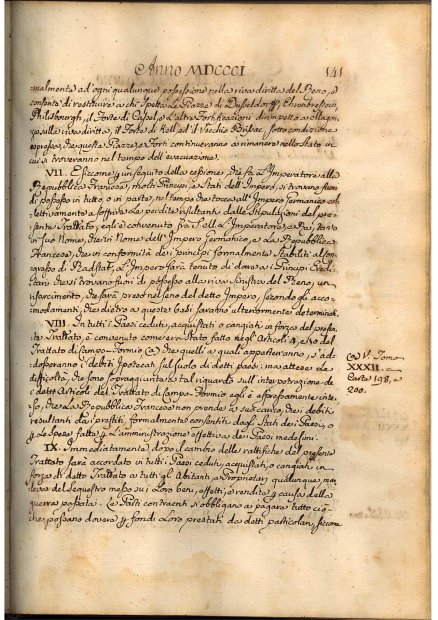 Anno MDCCCI 141
malmente ad ogni qualunque possessione nella riva diritta del Reno, e
consente di restituire a chi spetta le Piazze di Dusseldorff, Ehrenbrestein,
Philisbourgh, il Forte di Cassel, e l'altre Fortificazioni dirimpetto a Magon-
za sulla riva diritta, il Forte di Kell ed il Vecchio Brisac, sotto condizione
espressa, che queste Piazze, e Forti continueranno a rimanere nello Stato in
cui si troveranno nel tempo dell'evacuazione.
VII. E siccome in seguito della cessione, che fà l'Imperatore alla
Repubblica Francese, molti Principi, e Stati dell'Impero, si trovano fuori
di possesso in tutto, o in parte, nel tempo che tocca all'Impero Germanico col-
lettivamente a soffrire le perdite risultanti dalle Stipulazioni del pre-
sente Trattato, egli è convenuto fra S. M. l'Imperatore, e Rè, tanto
in Suo Nome, che in Nome dell'Impero Germanico, e la Repubblica
Francese, che in conformità de' principj formalmente Stabiliti al Con-
gresso di Radstat, l'Impero sarà tenuto di dare a' Principi Eredi-
tarj che si trovano fuori di possesso alla riva Sinistra del Reno, un
risarcimento, che sarà preso nel seno del detto Impero, secondo gli acco-
modamenti, che dietro a queste basi saranno ulteriormente determinati.
VIII. In tutti i Paesi ceduti, acquistati, o cangiati in forza del prese-
nte Trattato, è convenuto come era Stato fatto negli Articoli 4, e 10 del
Trattato di Campo-Formio (a) che quelli a' quali apparteranno, si ad-
dosseranno i debiti Ipotecati sul suolo di detti paesi: ma attese le
difficoltà, che sono sopraggiunte a tal riguardo sull'interpretazione de'
detti Articoli del Trattato di Campo-Formio, egli è espressamente inte-
so, che la Repubblica Francese non prende a suo carico, che i debiti
resultanti da' prestiti, formalmente consentiti dagli Stati de' Paesi, o
p le spese fatte p l'amministrazione effettiva de' Paesi medesimi.
IX. Immediatamente dopo il cambio delle rattifiche del presente
Trattato sarà accordato in tutti i Paesi ceduti, acquistati, o cangiati in
forza di detto Trattato a tutti gli Abitanti, e Proprietarj qualunque, ma-
leva del Sequestro messo su i loro beni, effetti, e rendite p causa della
guerra passata. Le Parti contraenti si obbligano a pagare tutto ciò
che possano dovere p fondi loro prestati da detti particolari, siccome
(a) V. Tomo
XXXII. a
Carte 198, e
200.